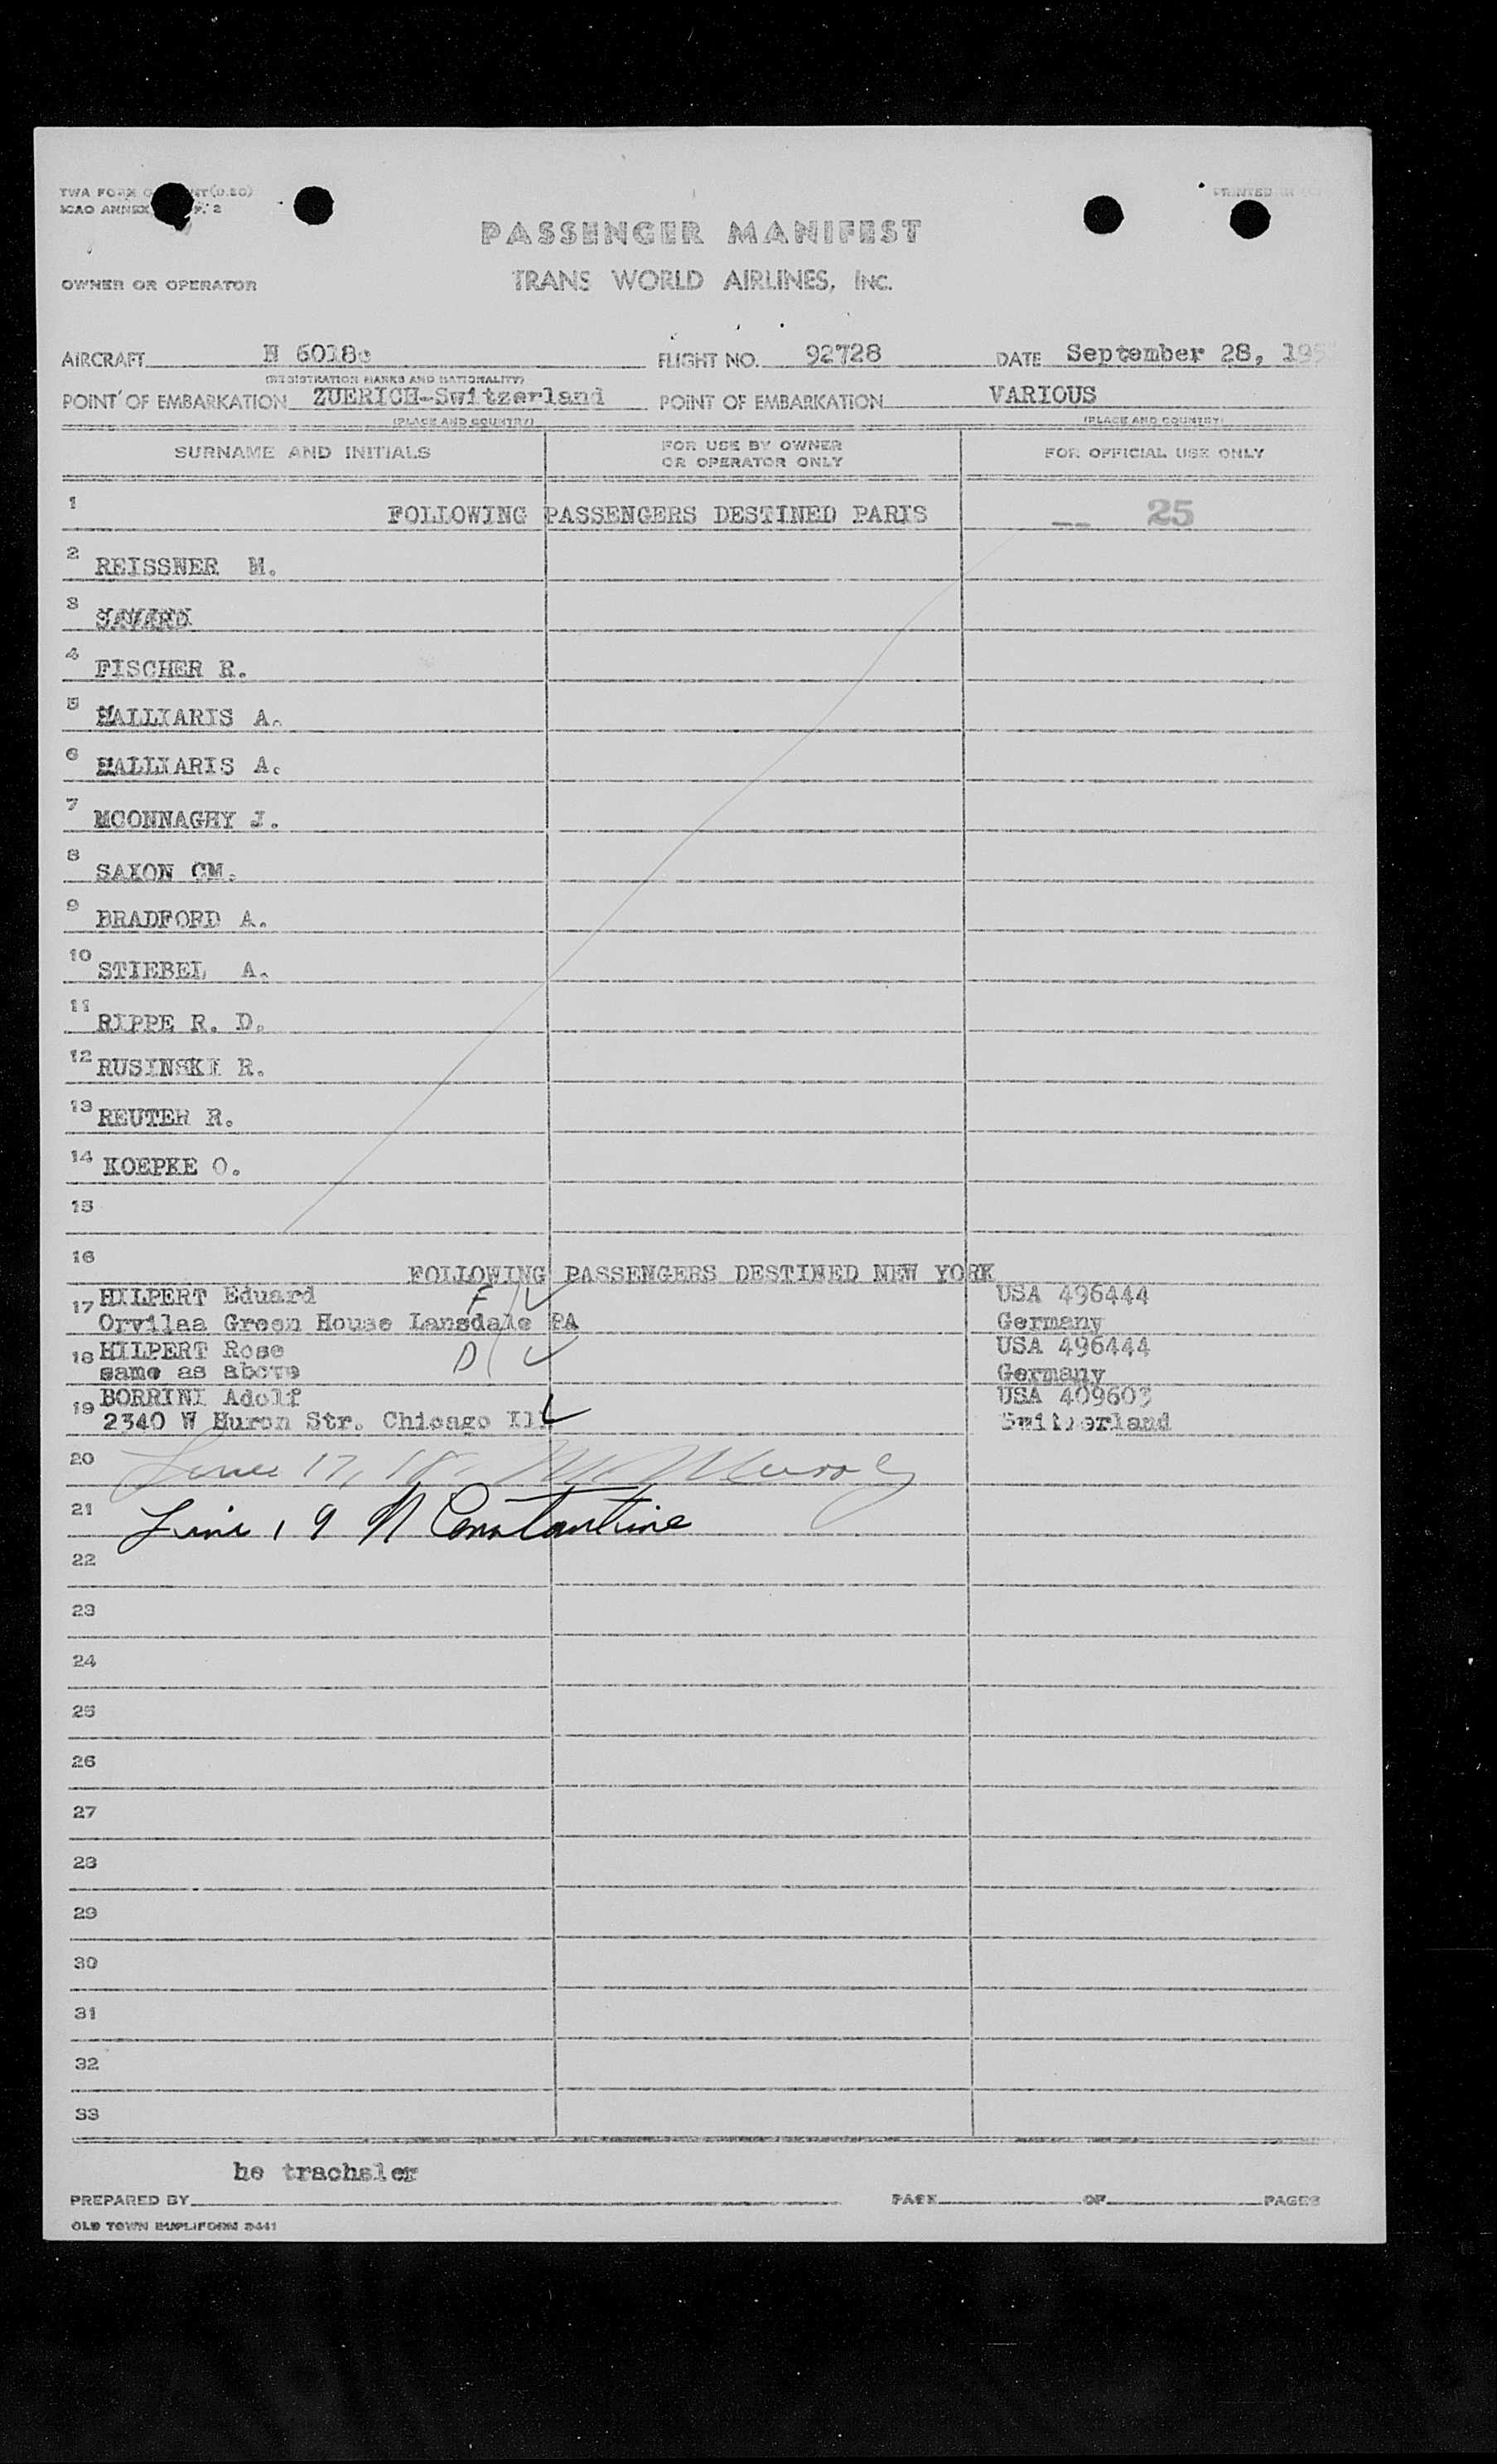 TWA FORM
ICAO ANNEX
P. 2
PRINTED IN
PASSENGER MANIFEST
OWNER OR OPERATOR
TRANS WORLD AIRLINES, INC.
AIRCRAFT N 6018c FLIGHT NO. 92728 DATE September 28, 195
(REGISTRATION MARKS AND NATIONALITY)
POINT OF EMBARKATION ZUERICH-Switzerland POINT OF EMBARKATION VARIOUS
(PLACE AND COUNTRY) (PLACE AND COUNTRY)
SURNAME AND INITIALS FOR USE BY OWNER OR OPERATOR ONLY FOR OFFICIAL USE ONLY
1 FOLLOWING PASSENGERS DESTINED PARIS -- 25
2 REISSNER M.
3 SAVARD
4 FISCHER R.
5 HALLIARIS A.
6 HALLIARIS A.
7 MCONNAGHY J.
8 SAXON CM.
9 BRADFORD A.
10 STIEBEL A.
11 RIPPE R. D.
12 RUSINSKI R.
13 REUTER R.
14 KOEPKE O.
15
16 FOLLOWING PASSENGERS DESTINED NEW YORK
17 HILPERT Eduard F USA 496444
Orvilaa Green House Lansdale PA Germany
18 HILPERT Rose D USA 496444
same as above Germany
19 BORRINI Adolf USA 409603
2340 W Huron Str. Chicago Ill Switzerland
20 Lines 17, 18.
21 Line 19 N Constantine
22
23
24
25
26
27
28
29
30
31
32
33
he trachsler
PREPARED BY PAGE OF PAGES
OLD TOWN DUPLIFORM 8441